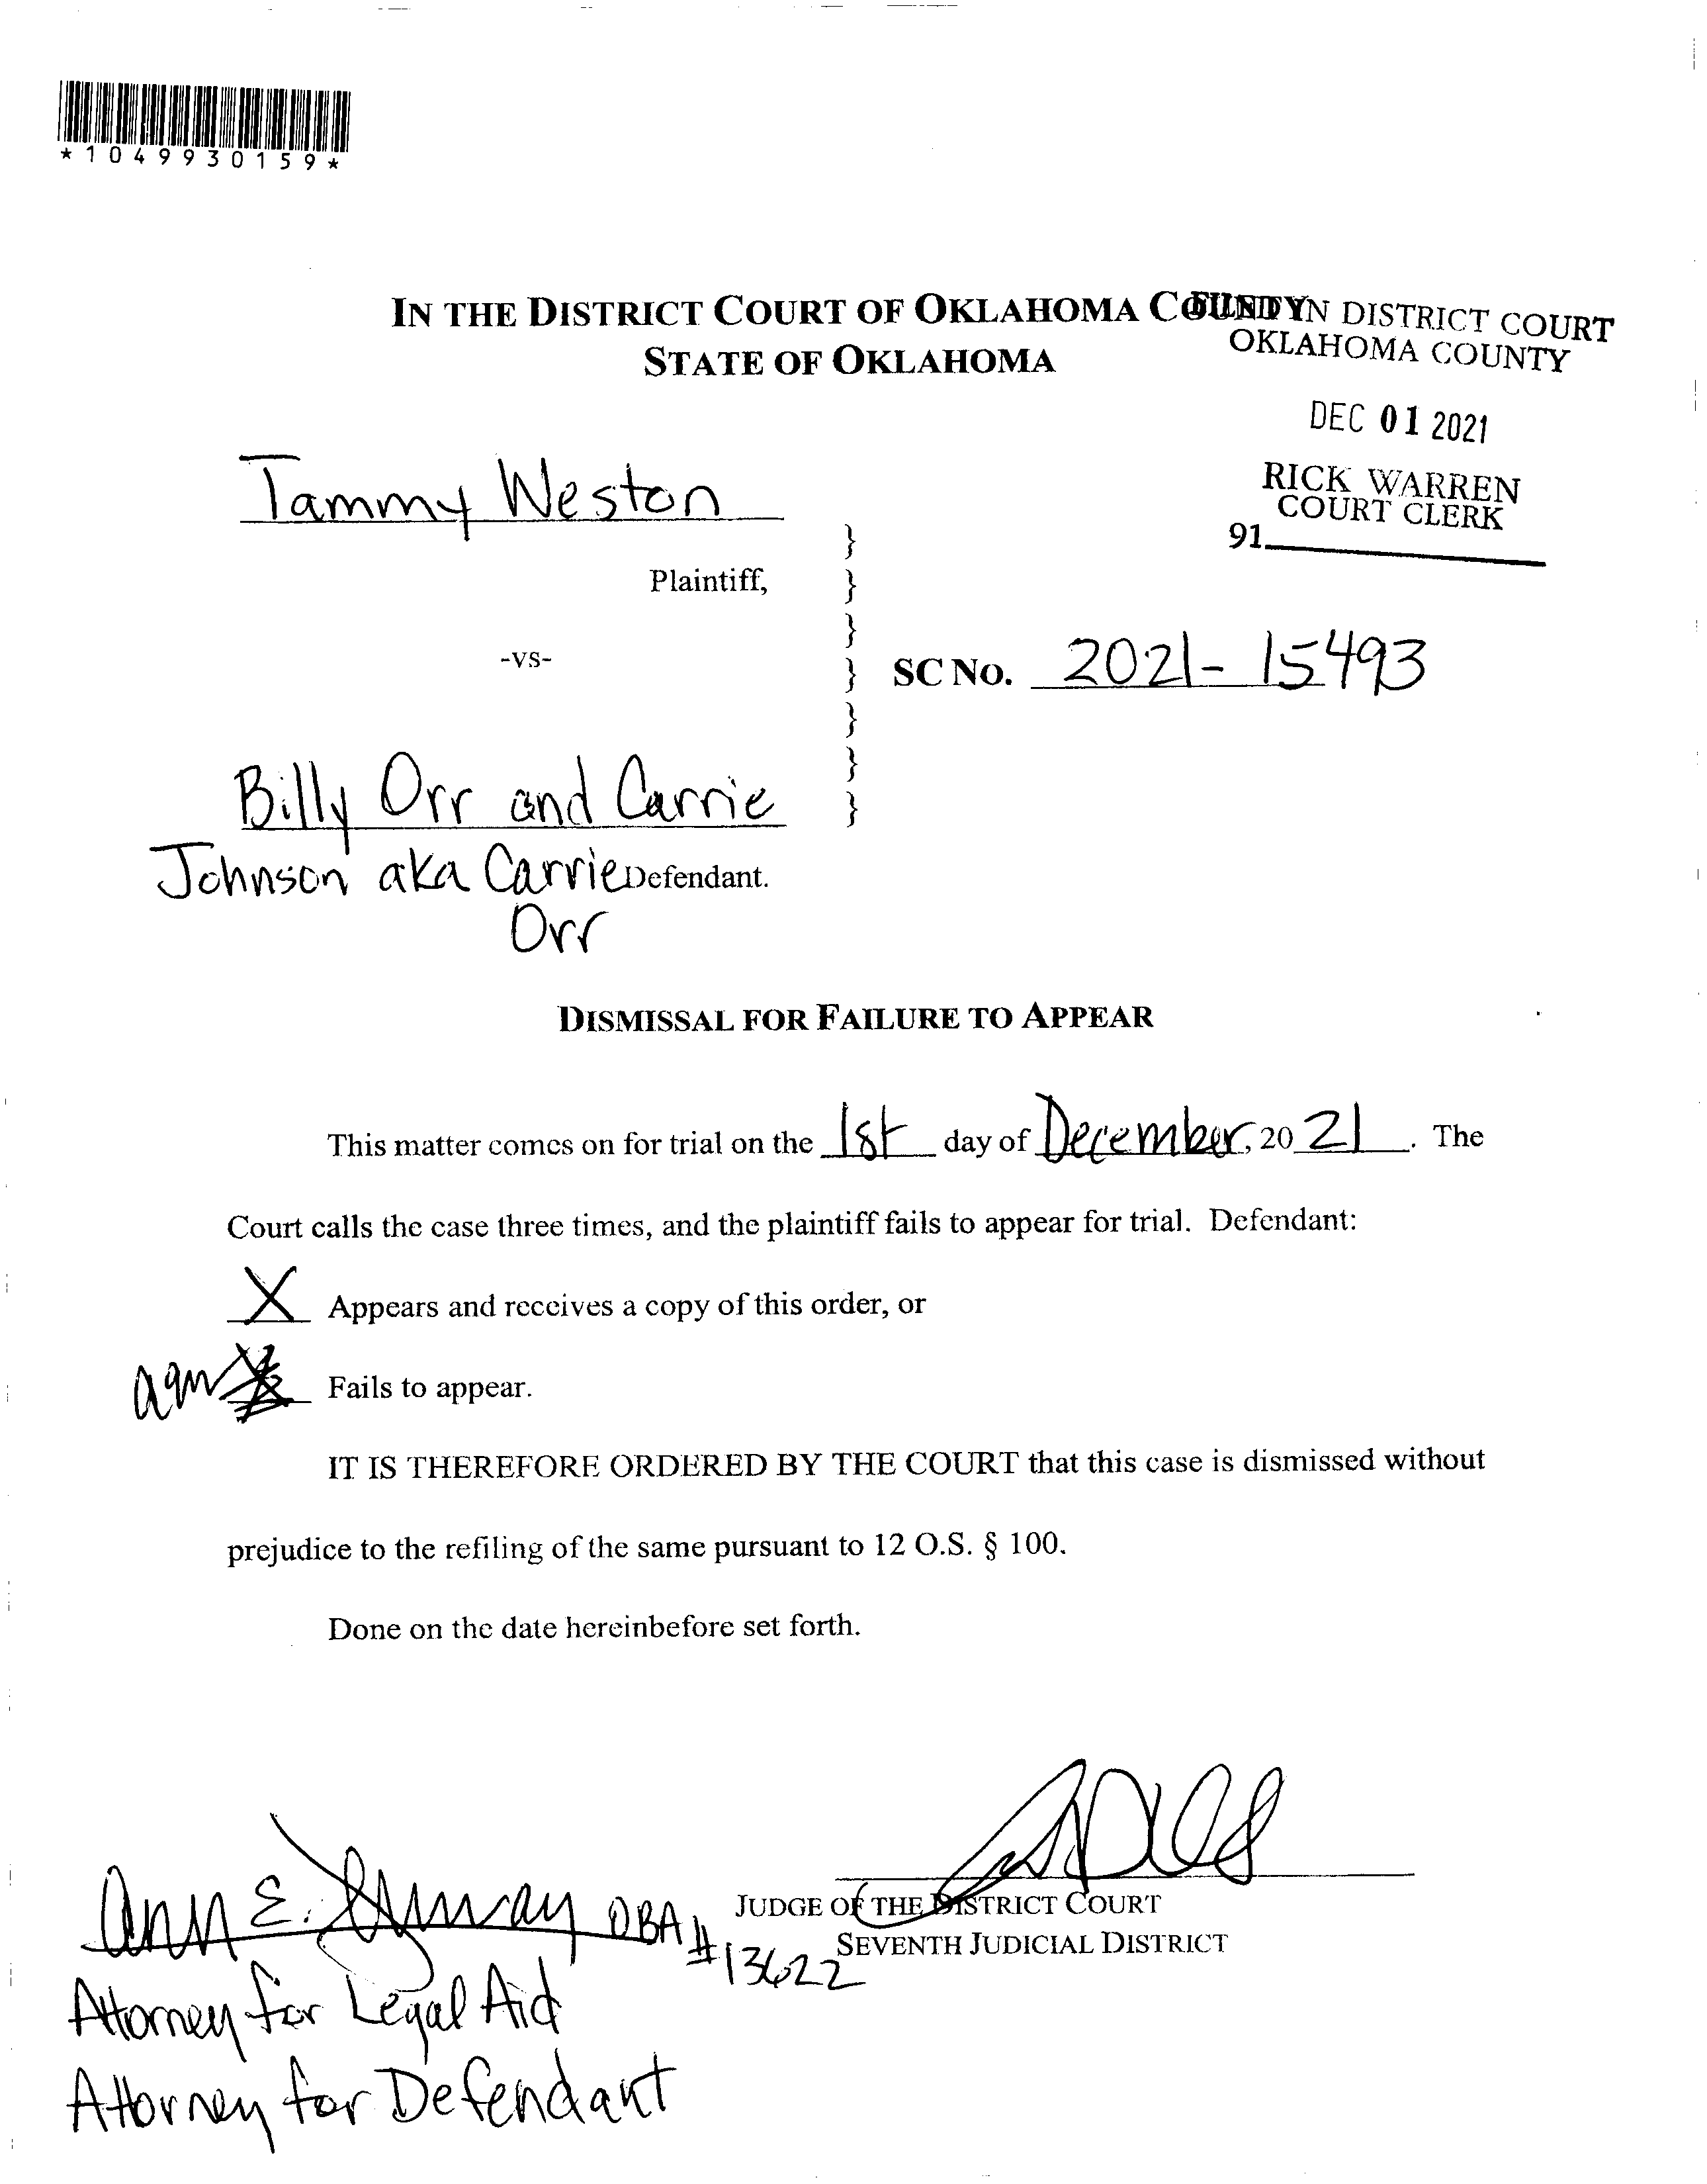 *1049930159*
IN THE DISTRICT COURT OF OKLAHOMA COUNTY
STATE OF OKLAHOMA
FILED IN DISTRICT COURT
OKLAHOMA COUNTY
DEC 01 2021
RICK WARREN
COURT CLERK
91
Tammy Weston
Plaintiff,
-vs-
SC No. 2021-15493
Billy Orr and Carrie
Johnson aka Carrie Defendant.
Orr
DISMISSAL FOR FAILURE TO APPEAR
This matter comes on for trial on the 1st day of December, 2021. The
Court calls the case three times, and the plaintiff fails to appear for trial. Defendant:
X Appears and receives a copy of this order, or
Fails to appear.
IT IS THEREFORE ORDERED BY THE COURT that this case is dismissed without
prejudice to the refiling of the same pursuant to 12 O.S. § 100.
Done on the date hereinbefore set forth.
JUDGE OF THE DISTRICT COURT
SEVENTH JUDICIAL DISTRICT
Ann E. OBA #13622
Attorney for Legal Aid
Attorney for Defendant